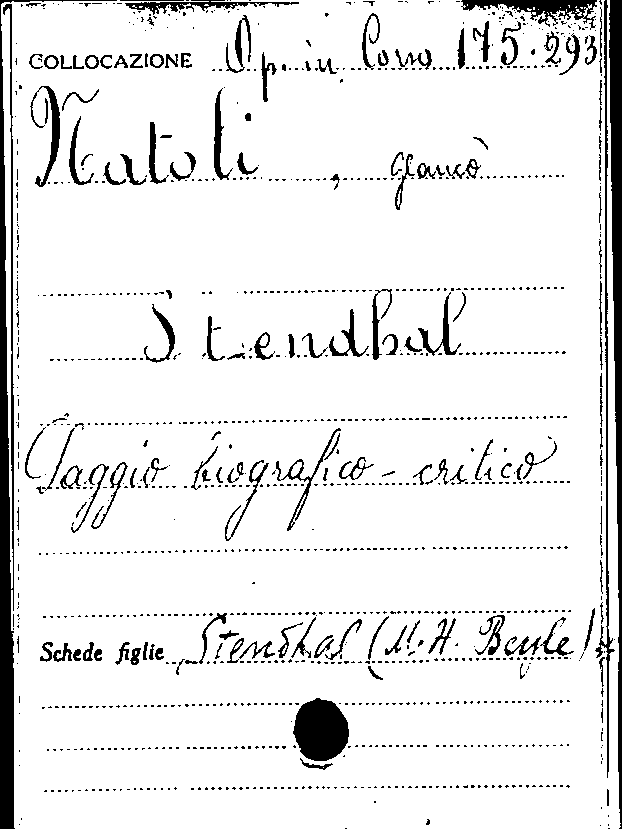 COLLOCAZIONE Op. in Corso 175.293
Natoli, Glauco
Stendhal
Saggio biografico - critico
Schede figlie Stendhal (M. H. Beyle)